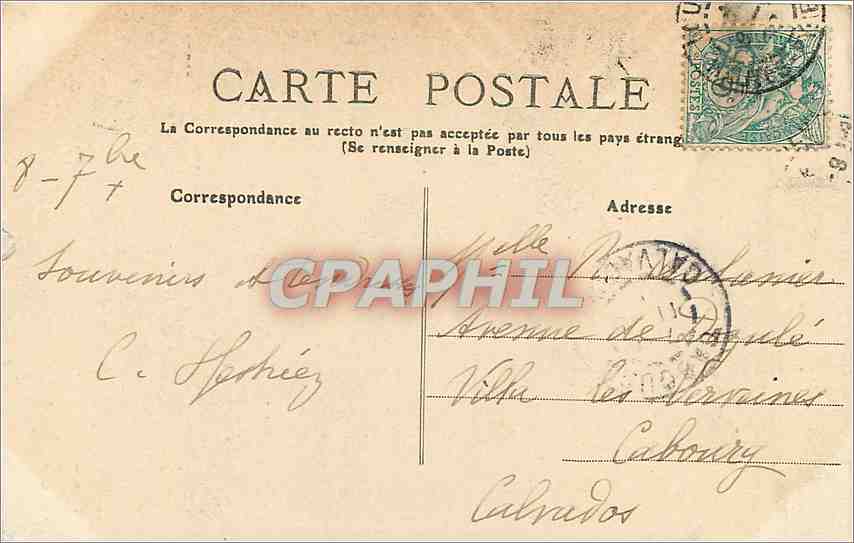 CARTE POSTALE
La Correspondance au recto n'est pas acceptée par tous les pays étrang
(Se renseigner à la Poste)
8 - 7bre
Correspondance
Adresse
Souvenirs et
C.
Melle
Avenue de
Villa les Verveines
Cabourg
Calvados
POSTES
CALVA
CPAPHIL